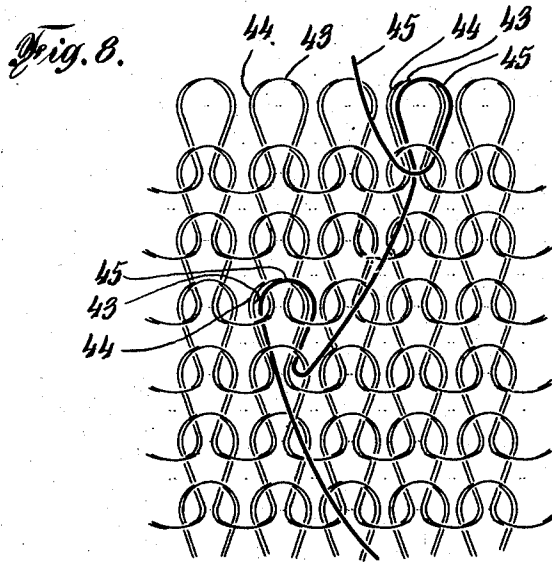 Fig. 8.
44 43 45 44 43 45
45
43
44